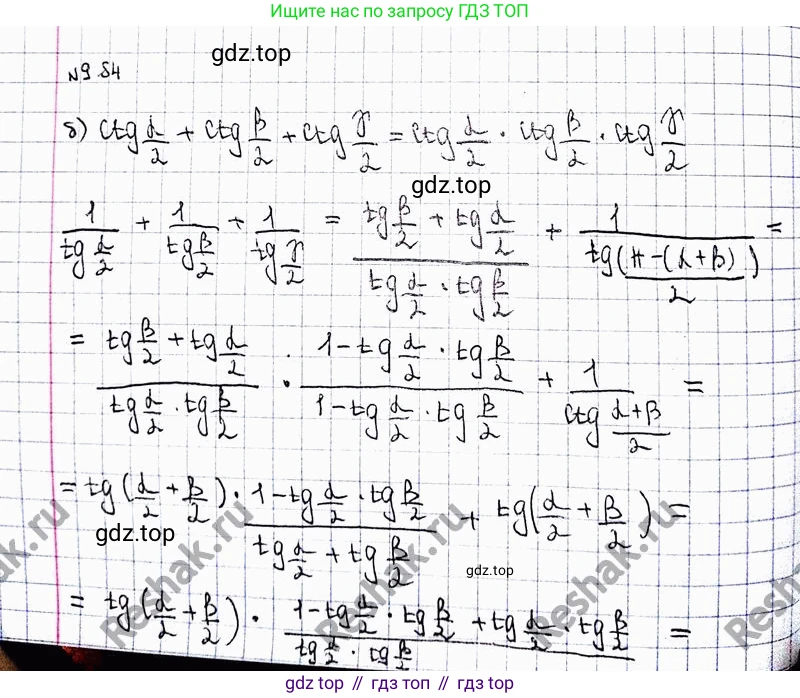 Ищите нас по запросу ГДЗ ТОП
№9.54
gdz.top
б) ctg α/2 + ctg β/2 + ctg γ/2 = ctg α/2 · ctg β/2 · ctg γ/2
gdz.top
1/(tg α/2) + 1/(tg β/2) + 1/(tg γ/2) = (tg β/2 + tg α/2)/(tg α/2 · tg β/2) + 1/(tg (π-(α+β))/2) =
= (tg β/2 + tg α/2)/(tg α/2 · tg β/2) · (1-tg α/2 · tg β/2)/(1-tg α/2 · tg β/2) + 1/(ctg (α+β)/2) =
= tg(α/2 + β/2) · (1-tg α/2 · tg β/2)/(tg α/2 + tg β/2) + tg(α/2 + β/2) =
gdz.top
gdz.top
= tg(α/2 + β/2) · (1-tg α/2 · tg β/2 + tg α/2 · tg β/2)/(tg α/2 · tg β/2) =
Reshak.ru
Reshak.ru
Reshak.ru
Reshak.ru
gdz.top // гдз.топ // gdz.top